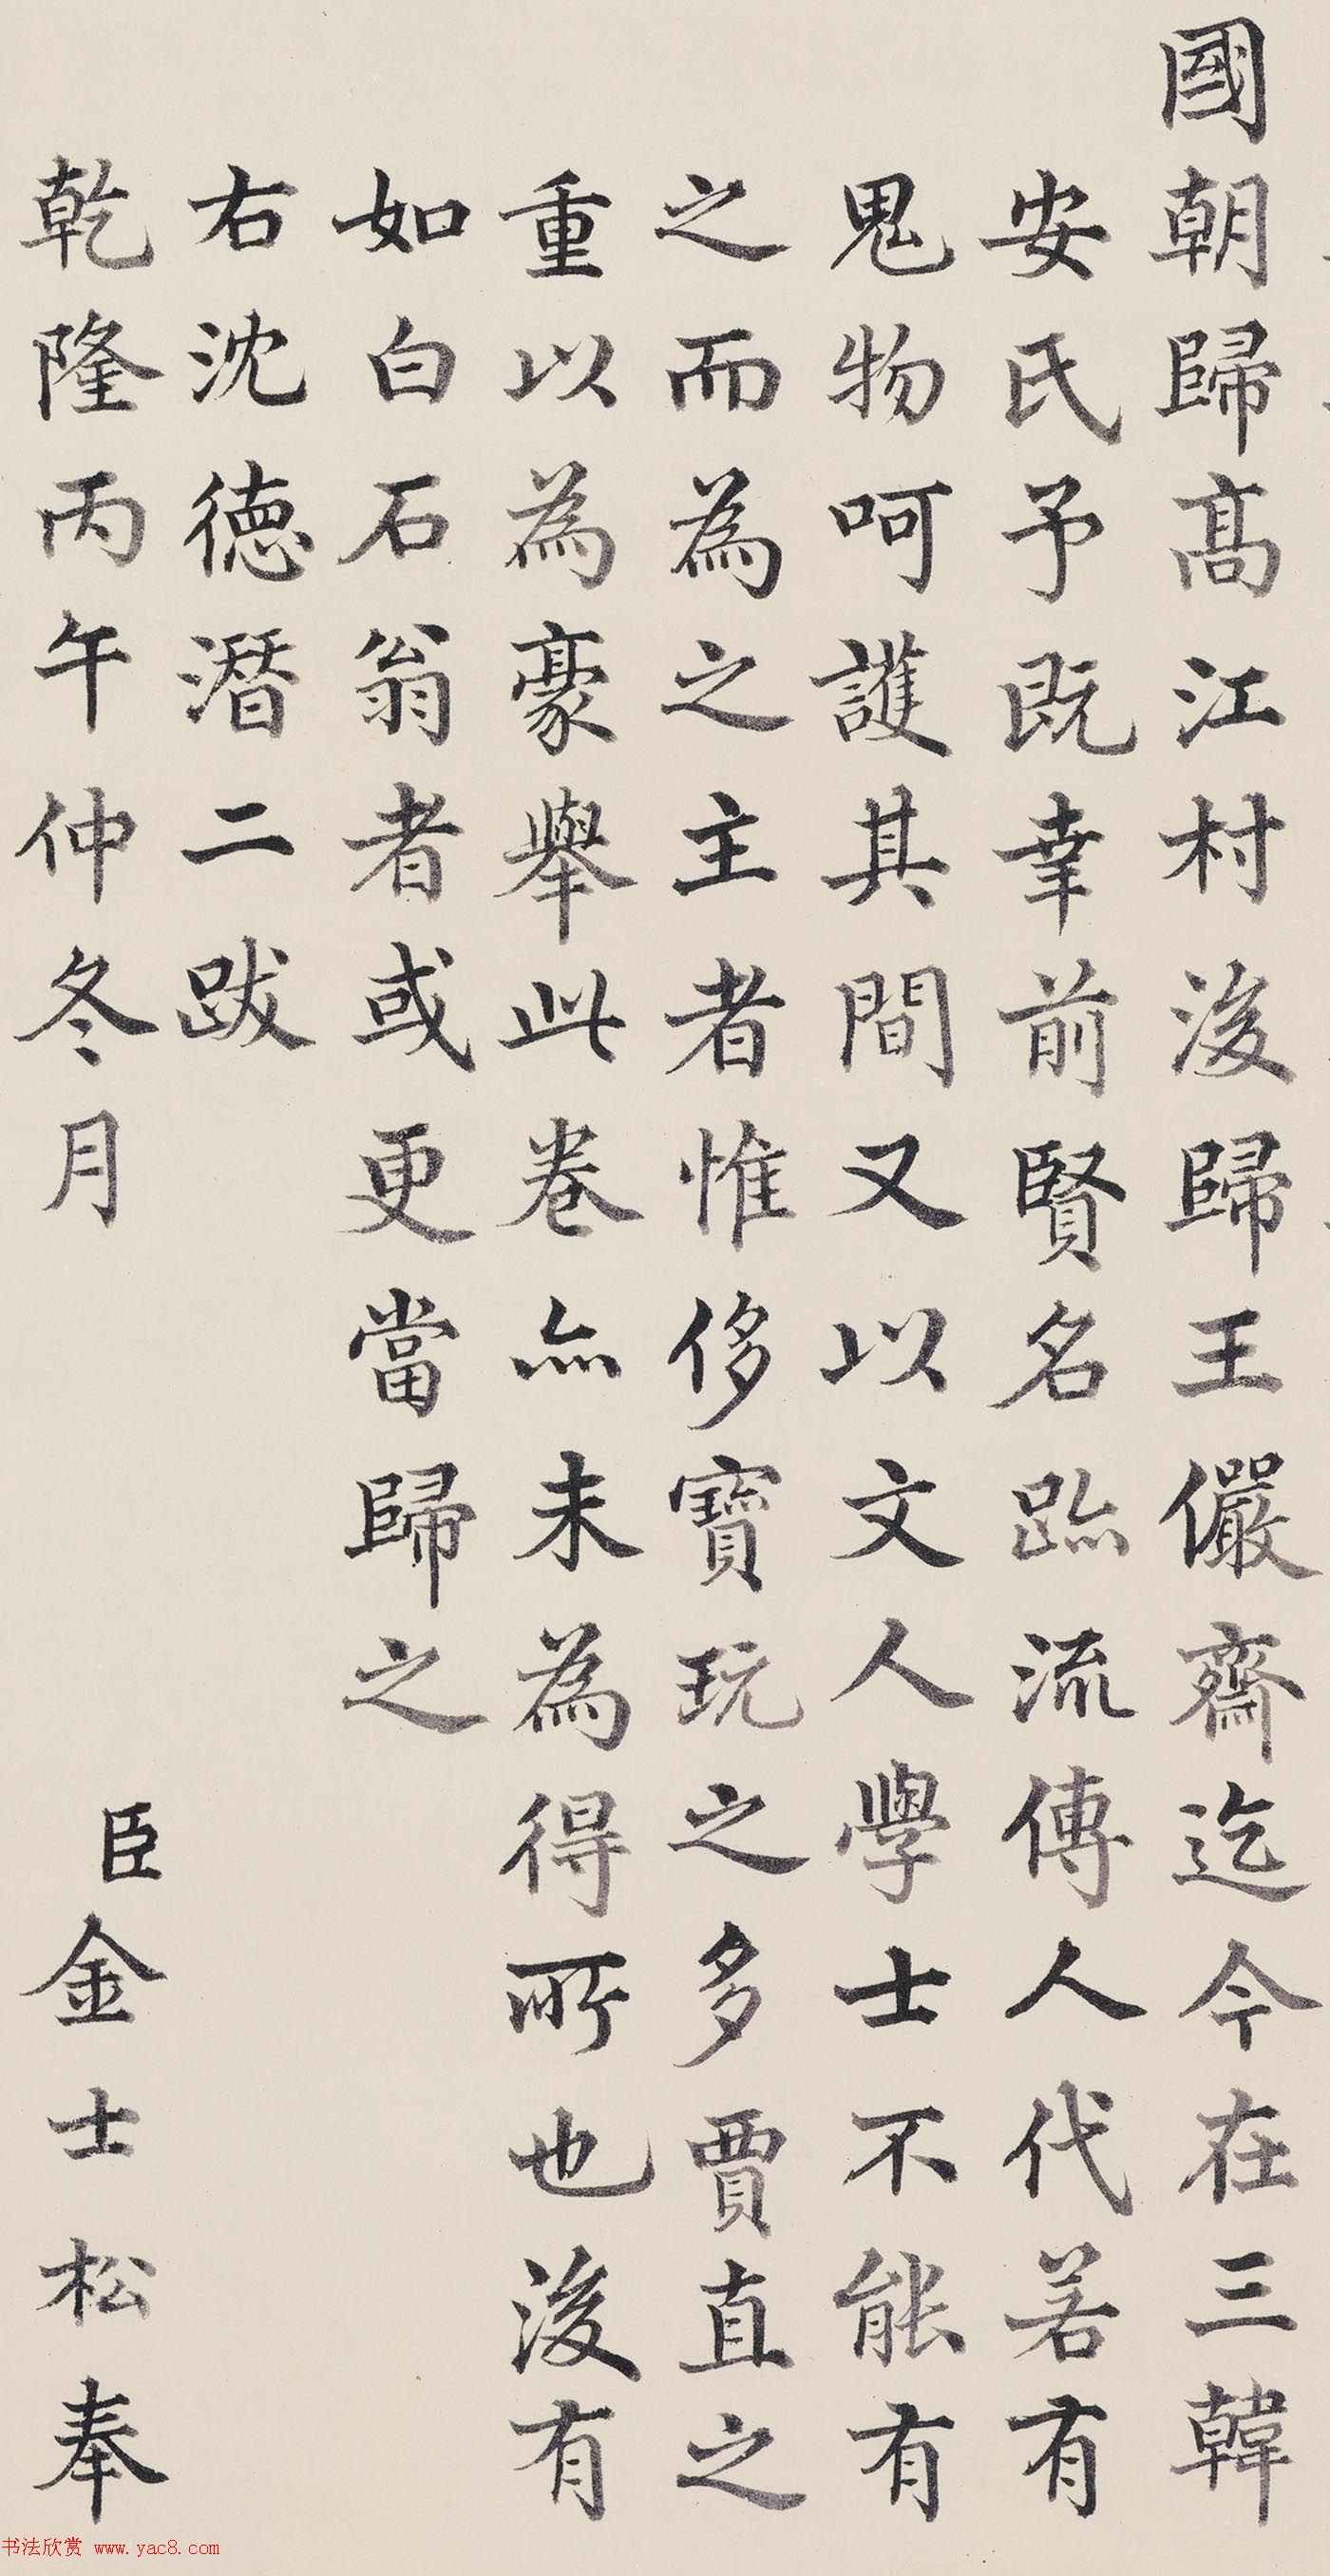 國朝歸高江村後歸王儼齋迄今在三韓
安氏予既幸前賢名跡流傳人代若有
鬼物呵護其間又以文人學士不能有
之而為之主者惟侈寶玩之多賈直之
重以為豪舉此卷亦未為得所也後有
如白石翁者或更當歸之
右沈德潛二跋
乾隆丙午仲冬月 臣金士松奉
书法欣赏 www.yac8.com